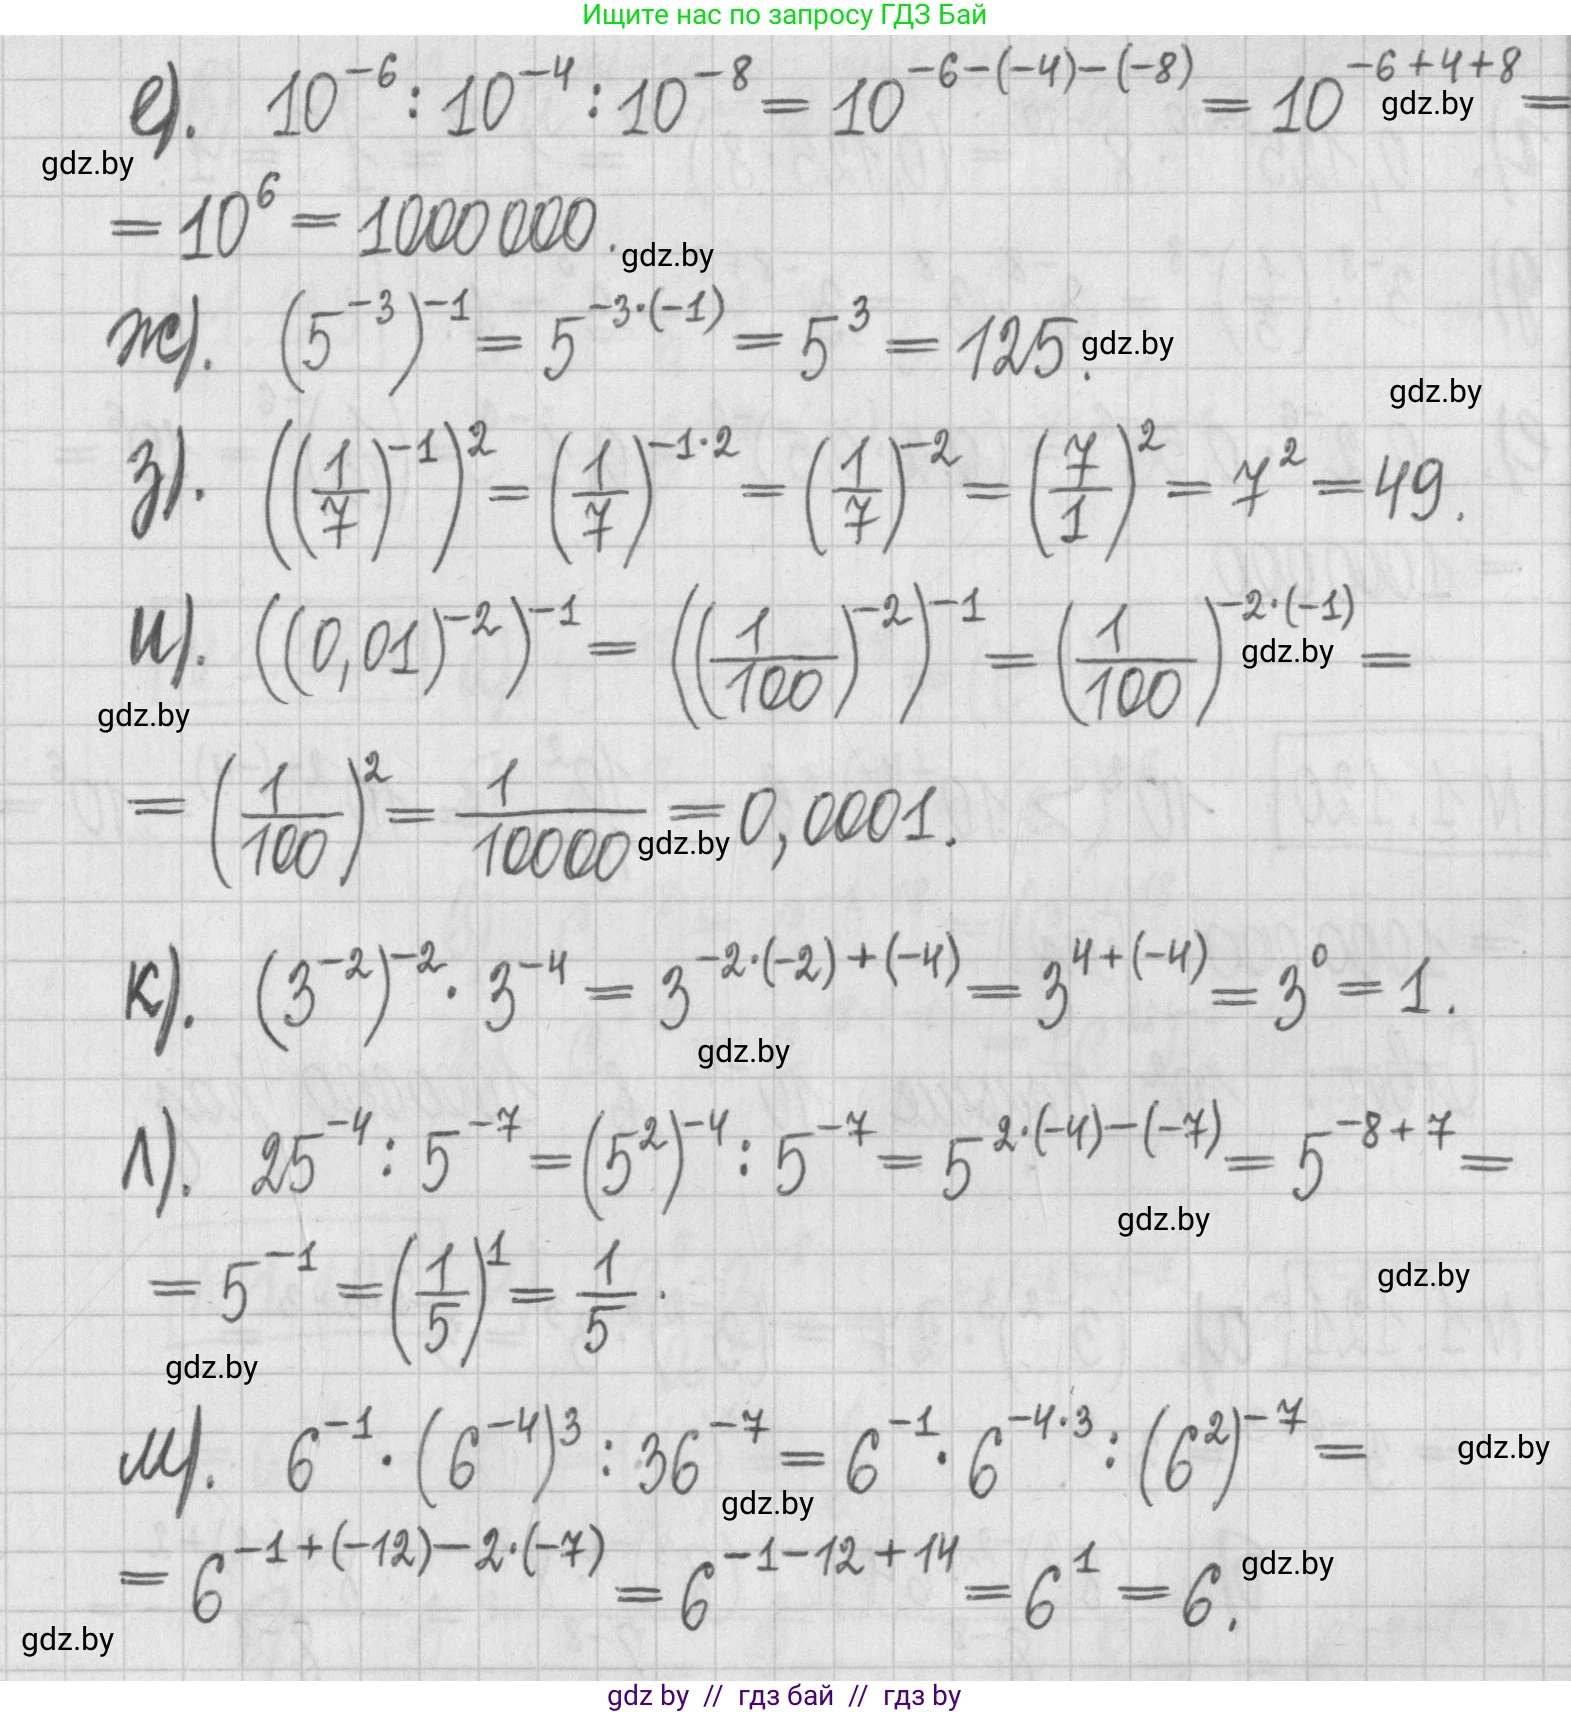 Ищите нас по запросу ГДЗ Бай
е). 10^{-6} : 10^{-4} : 10^{-8} = 10^{-6-(-4)-(-8)} = 10^{-6+4+8} =
gdz.by
gdz.by
= 10^6 = 1000 000.
gdz.by
ж). (5^{-3})^{-1} = 5^{-3·(-1)} = 5^3 = 125.
gdz.by
gdz.by
з). ((1/7)^{-1})^2 = (1/7)^{-1·2} = (1/7)^{-2} = (7/1)^2 = 7^2 = 49.
и). ((0,01)^{-2})^{-1} = ((1/100)^{-2})^{-1} = (1/100)^{-2·(-1)} =
gdz.by
gdz.by
= (1/100)^2 = 1/10000 = 0,0001.
gdz.by
к). (3^{-2})^{-2} · 3^{-4} = 3^{-2·(-2)+(-4)} = 3^{4+(-4)} = 3^0 = 1.
gdz.by
л). 25^{-4} : 5^{-7} = (5^2)^{-4} : 5^{-7} = 5^{2·(-4)-(-7)} = 5^{-8+7} =
gdz.by
= 5^{-1} = (1/5)^1 = 1/5.
gdz.by
gdz.by
м). 6^{-1} · (6^{-4})^3 : 36^{-7} = 6^{-1} · 6^{-4·3} : (6^2)^{-7} =
gdz.by
gdz.by
= 6^{-1+(-12)-2·(-7)} = 6^{-1-12+14} = 6^1 = 6.
gdz.by
gdz.by
gdz by // гдз бай // гдз by